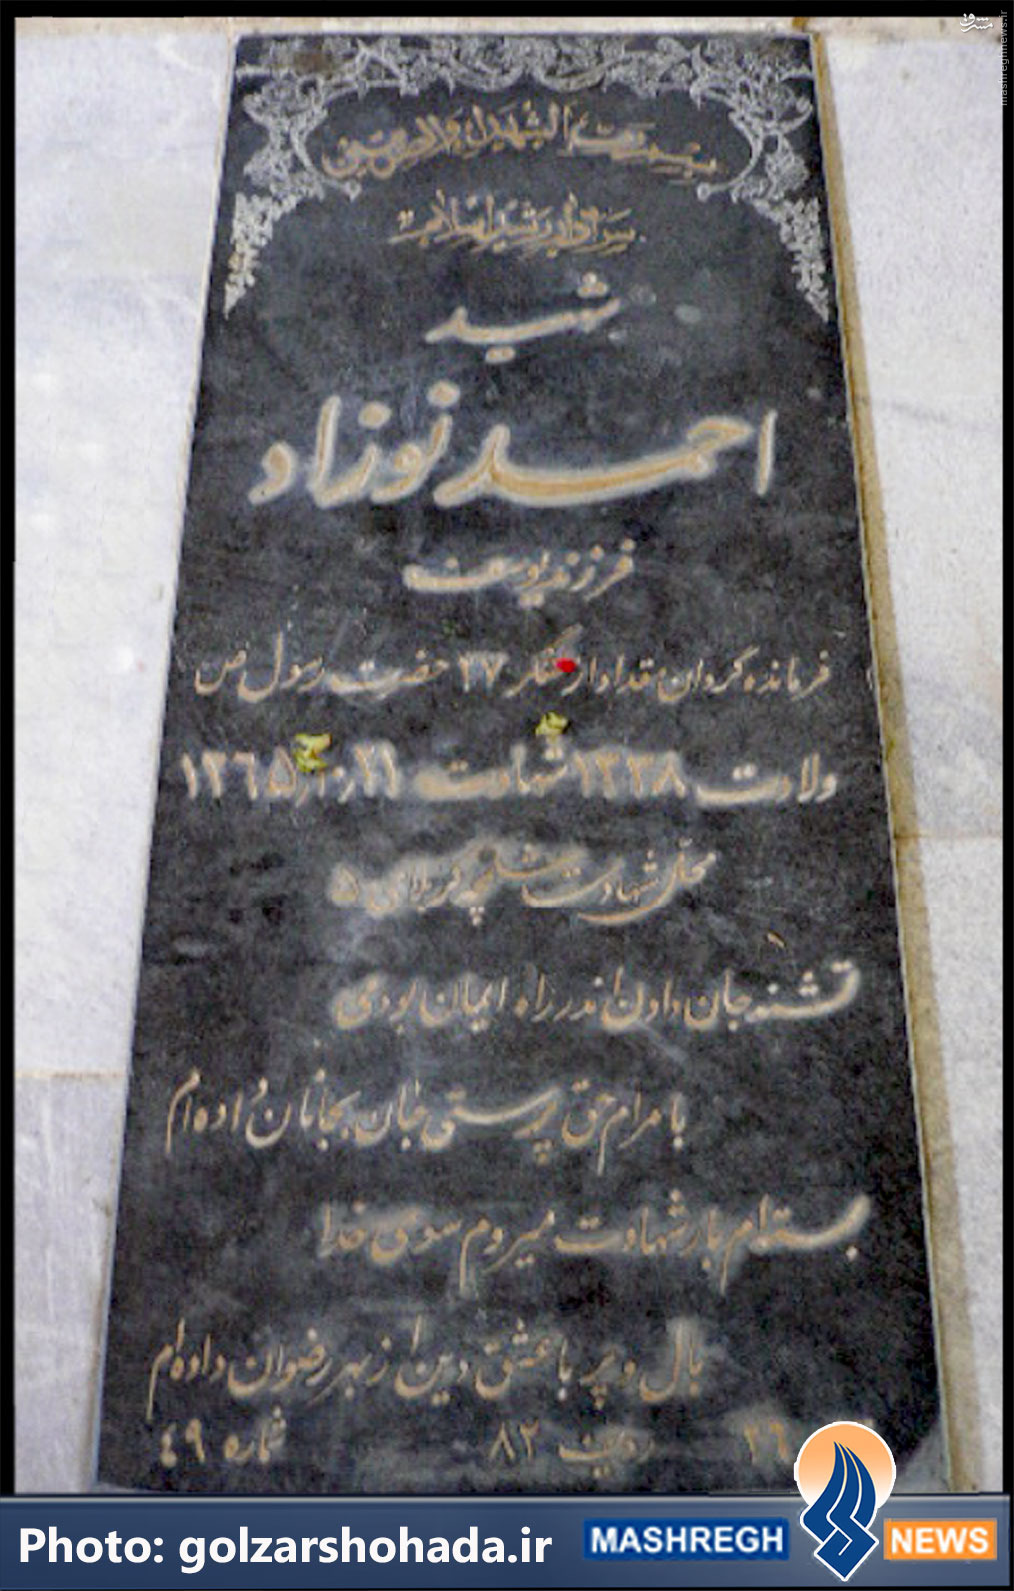 مشرق
mashreghnews.ir
بسم رب الشهداء والصدیقین
سردار رشید اسلام
شهید
احمد نوزاد
فرزند یوسف
فرمانده گردان مقداد از لشگر ۲۷ حضرت رسول ص
ولادت ۱۳۳۸ شهادت ۱۳۶۵٫۱۰٫۲۱
محل شهادت شلمچه کربلای ۵
تشنه جان دادن اندر راه ایمان بودمی
با مرام حق پرستی جان بجانان داده ام
بسته ام بار شهادت میروم سوی خدا
بال و پر با عشق دین از بهر رضوان داده ام
۲۶ ردیف ۸۲ شماره ٤۹
Photo: golzarshohada.ir
MASHREGH NEWS